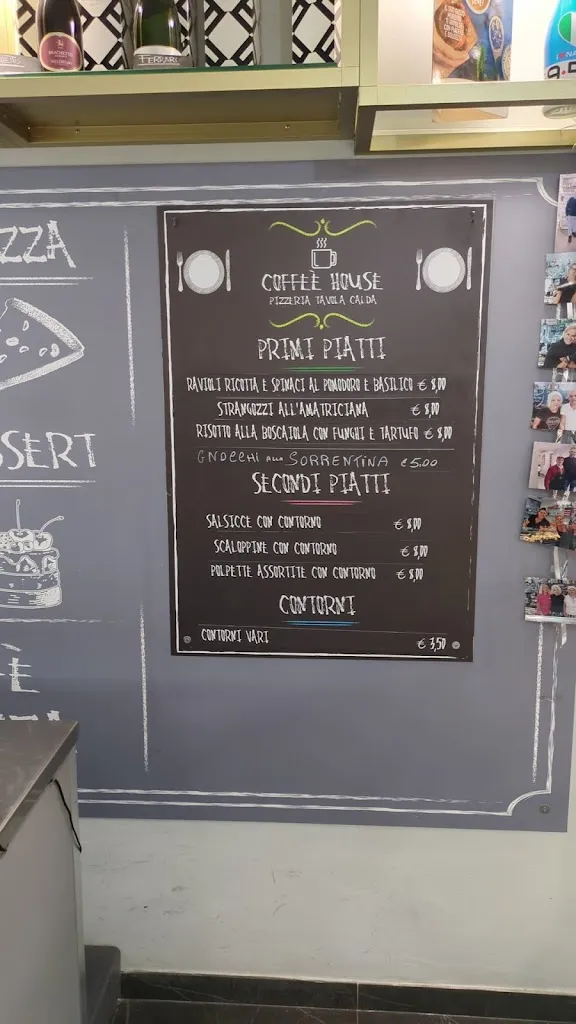 FERRARI
ZZA
SSERT
COFFEE HOUSE
PIZZERIA TAVOLA CALDA
PRIMI PIATTI
RAVIOLI RICOTTA E SPINACI AL POMODORO E BASILICO € 8,00
STRANGOZZI ALL'AMATRICIANA € 8,00
RISOTTO ALLA BOSCAIOLA CON FUNGHI E TARTUFO € 8,00
GNOCCHI alla SORRENTINA € 5.00
SECONDI PIATTI
SALSICCE CON CONTORNO € 8,00
SCALOPPINE CON CONTORNO € 8,00
POLPETTE ASSORTITE CON CONTORNO € 8,00
CONTORNI
CONTORNI VARI € 3,50